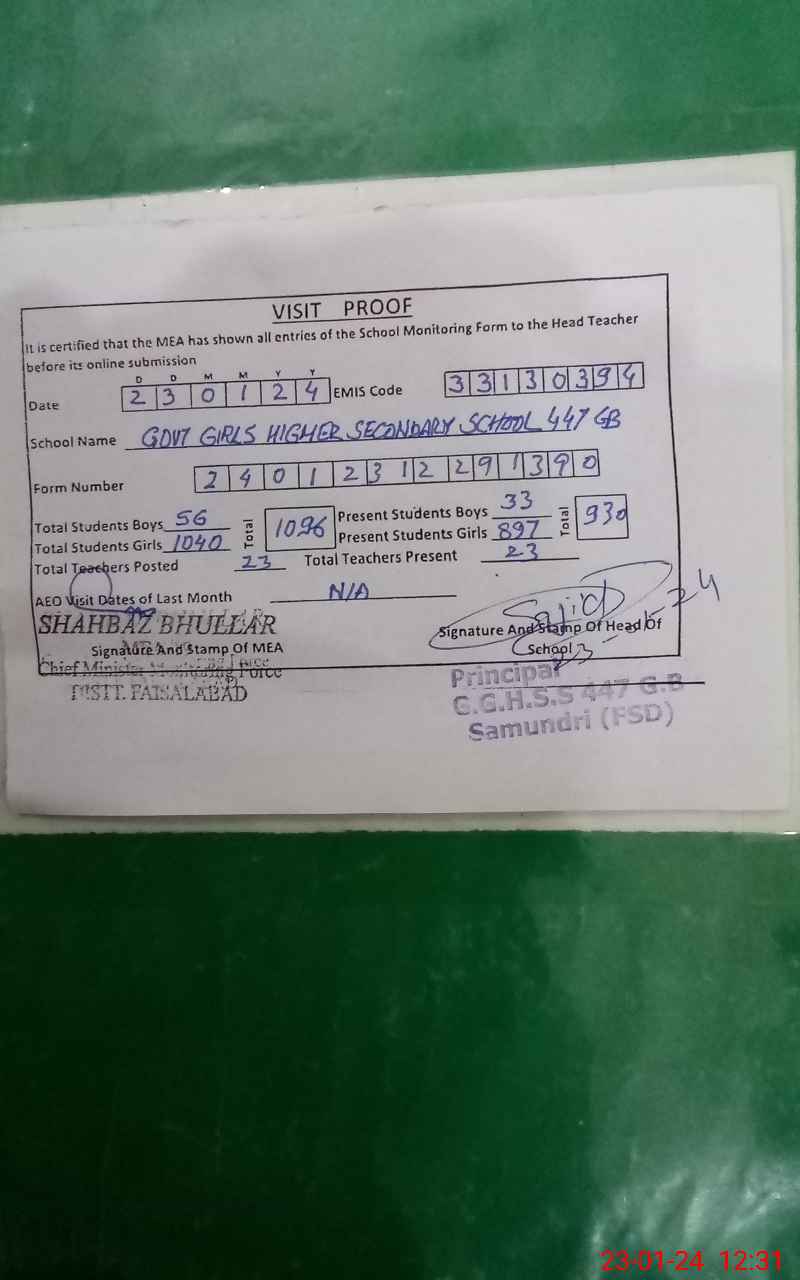 VISIT PROOF
It is certified that the MEA has shown all entries of the School Monitoring Form to the Head Teacher
before its online submission
D D M M Y Y
Date 2 3 0 1 2 4 EMIS Code 3 3 1 3 0 3 9 4
School Name GOVT GIRLS HIGHER SECONDARY SCHOOL 447 GB
Form Number 2 4 0 1 2 3 1 2 2 9 1 3 9 0
Total Students Boys 56 Total 1096 Present Students Boys 33 Total 930
Total Students Girls 1040 Present Students Girls 897
Total Teachers Posted 23 Total Teachers Present 23
AEO Visit Dates of Last Month N/A
SHAHBAZ BHULLAR Sajid
Signature And Stamp Of MEA Signature And Stamp Of Head Of School
Chief Minister Monitoring Force
DISTT. FAISALABAD
Principal
G.G.H.S.S 447 G.B
Samundri (FSD)
23-01-24 12:31